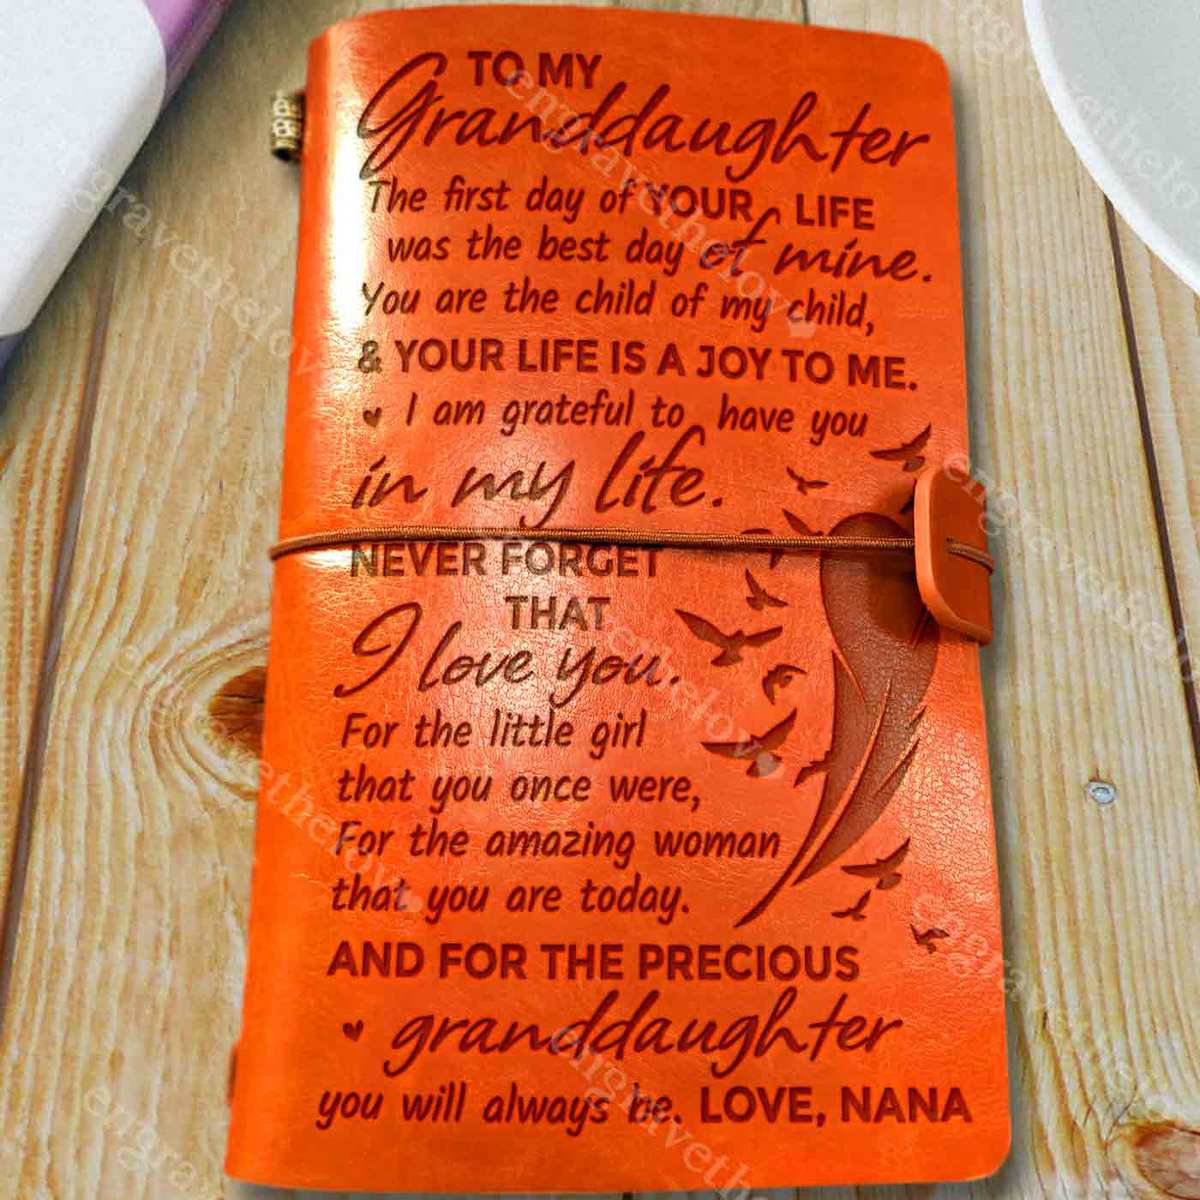 TO MY
Granddaughter
The first day of YOUR LIFE
was the best day of mine.
You are the child of my child,
& YOUR LIFE IS A JOY TO ME.
I am grateful to have you
in my life.
NEVER FORGET
THAT
I love you.
For the little girl
that you once were,
For the amazing woman
that you are today.
AND FOR THE PRECIOUS
granddaughter
you will always be. LOVE, NANA
engravethelov
engravethelov
engravethelov
engravethelov
engravethelov